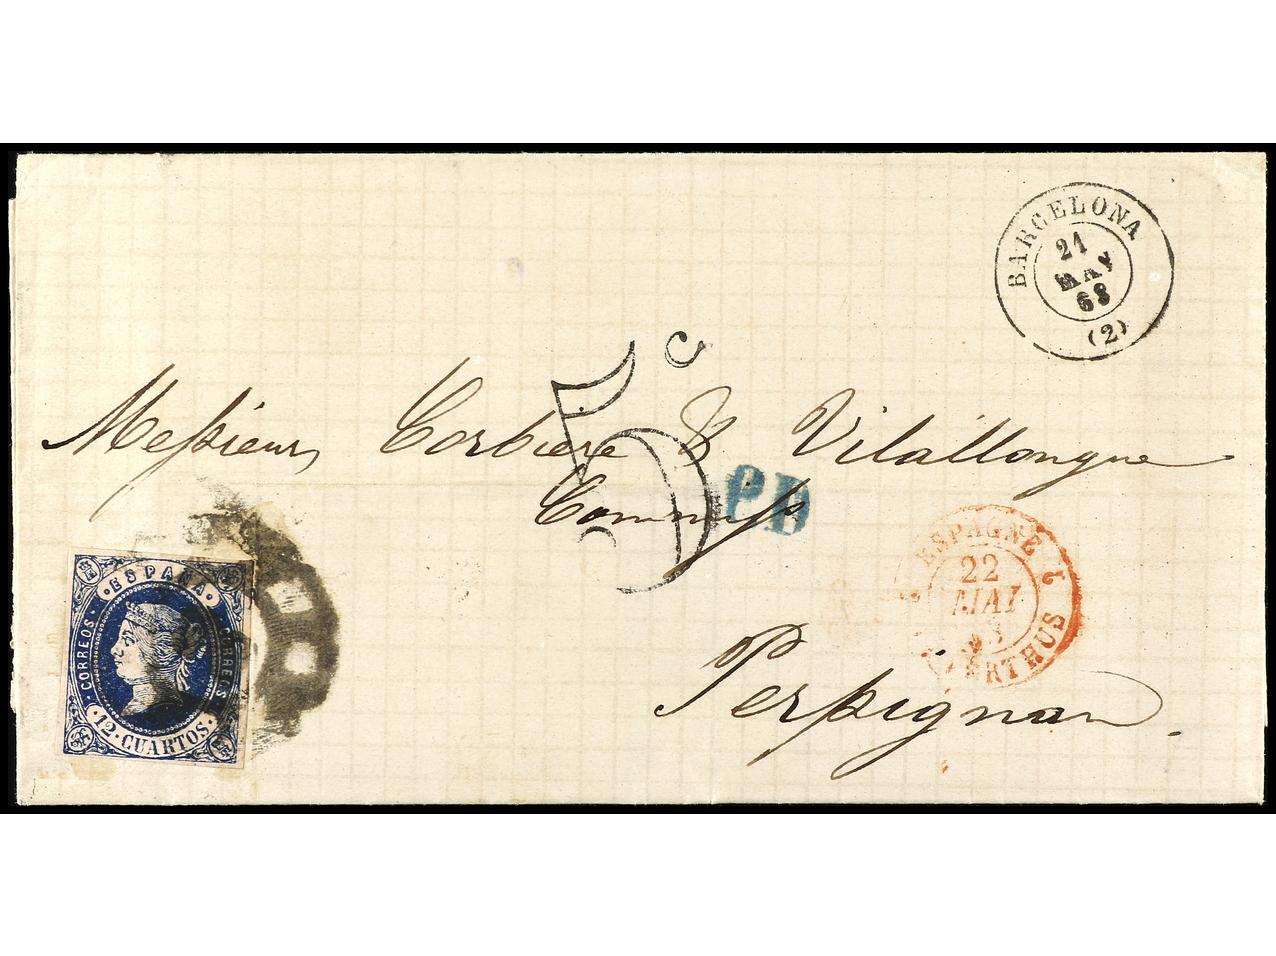 BARCELONA
21
MAY
63
(2)
5c
Messieurs Corbiere & Vilallongue
Commiss
PD
ESPAGNE
22
MAI
63
LE PERTHUS 1
Perpignan.
ESPAÑA
CORREOS
CORREOS
12 · CUARTOS